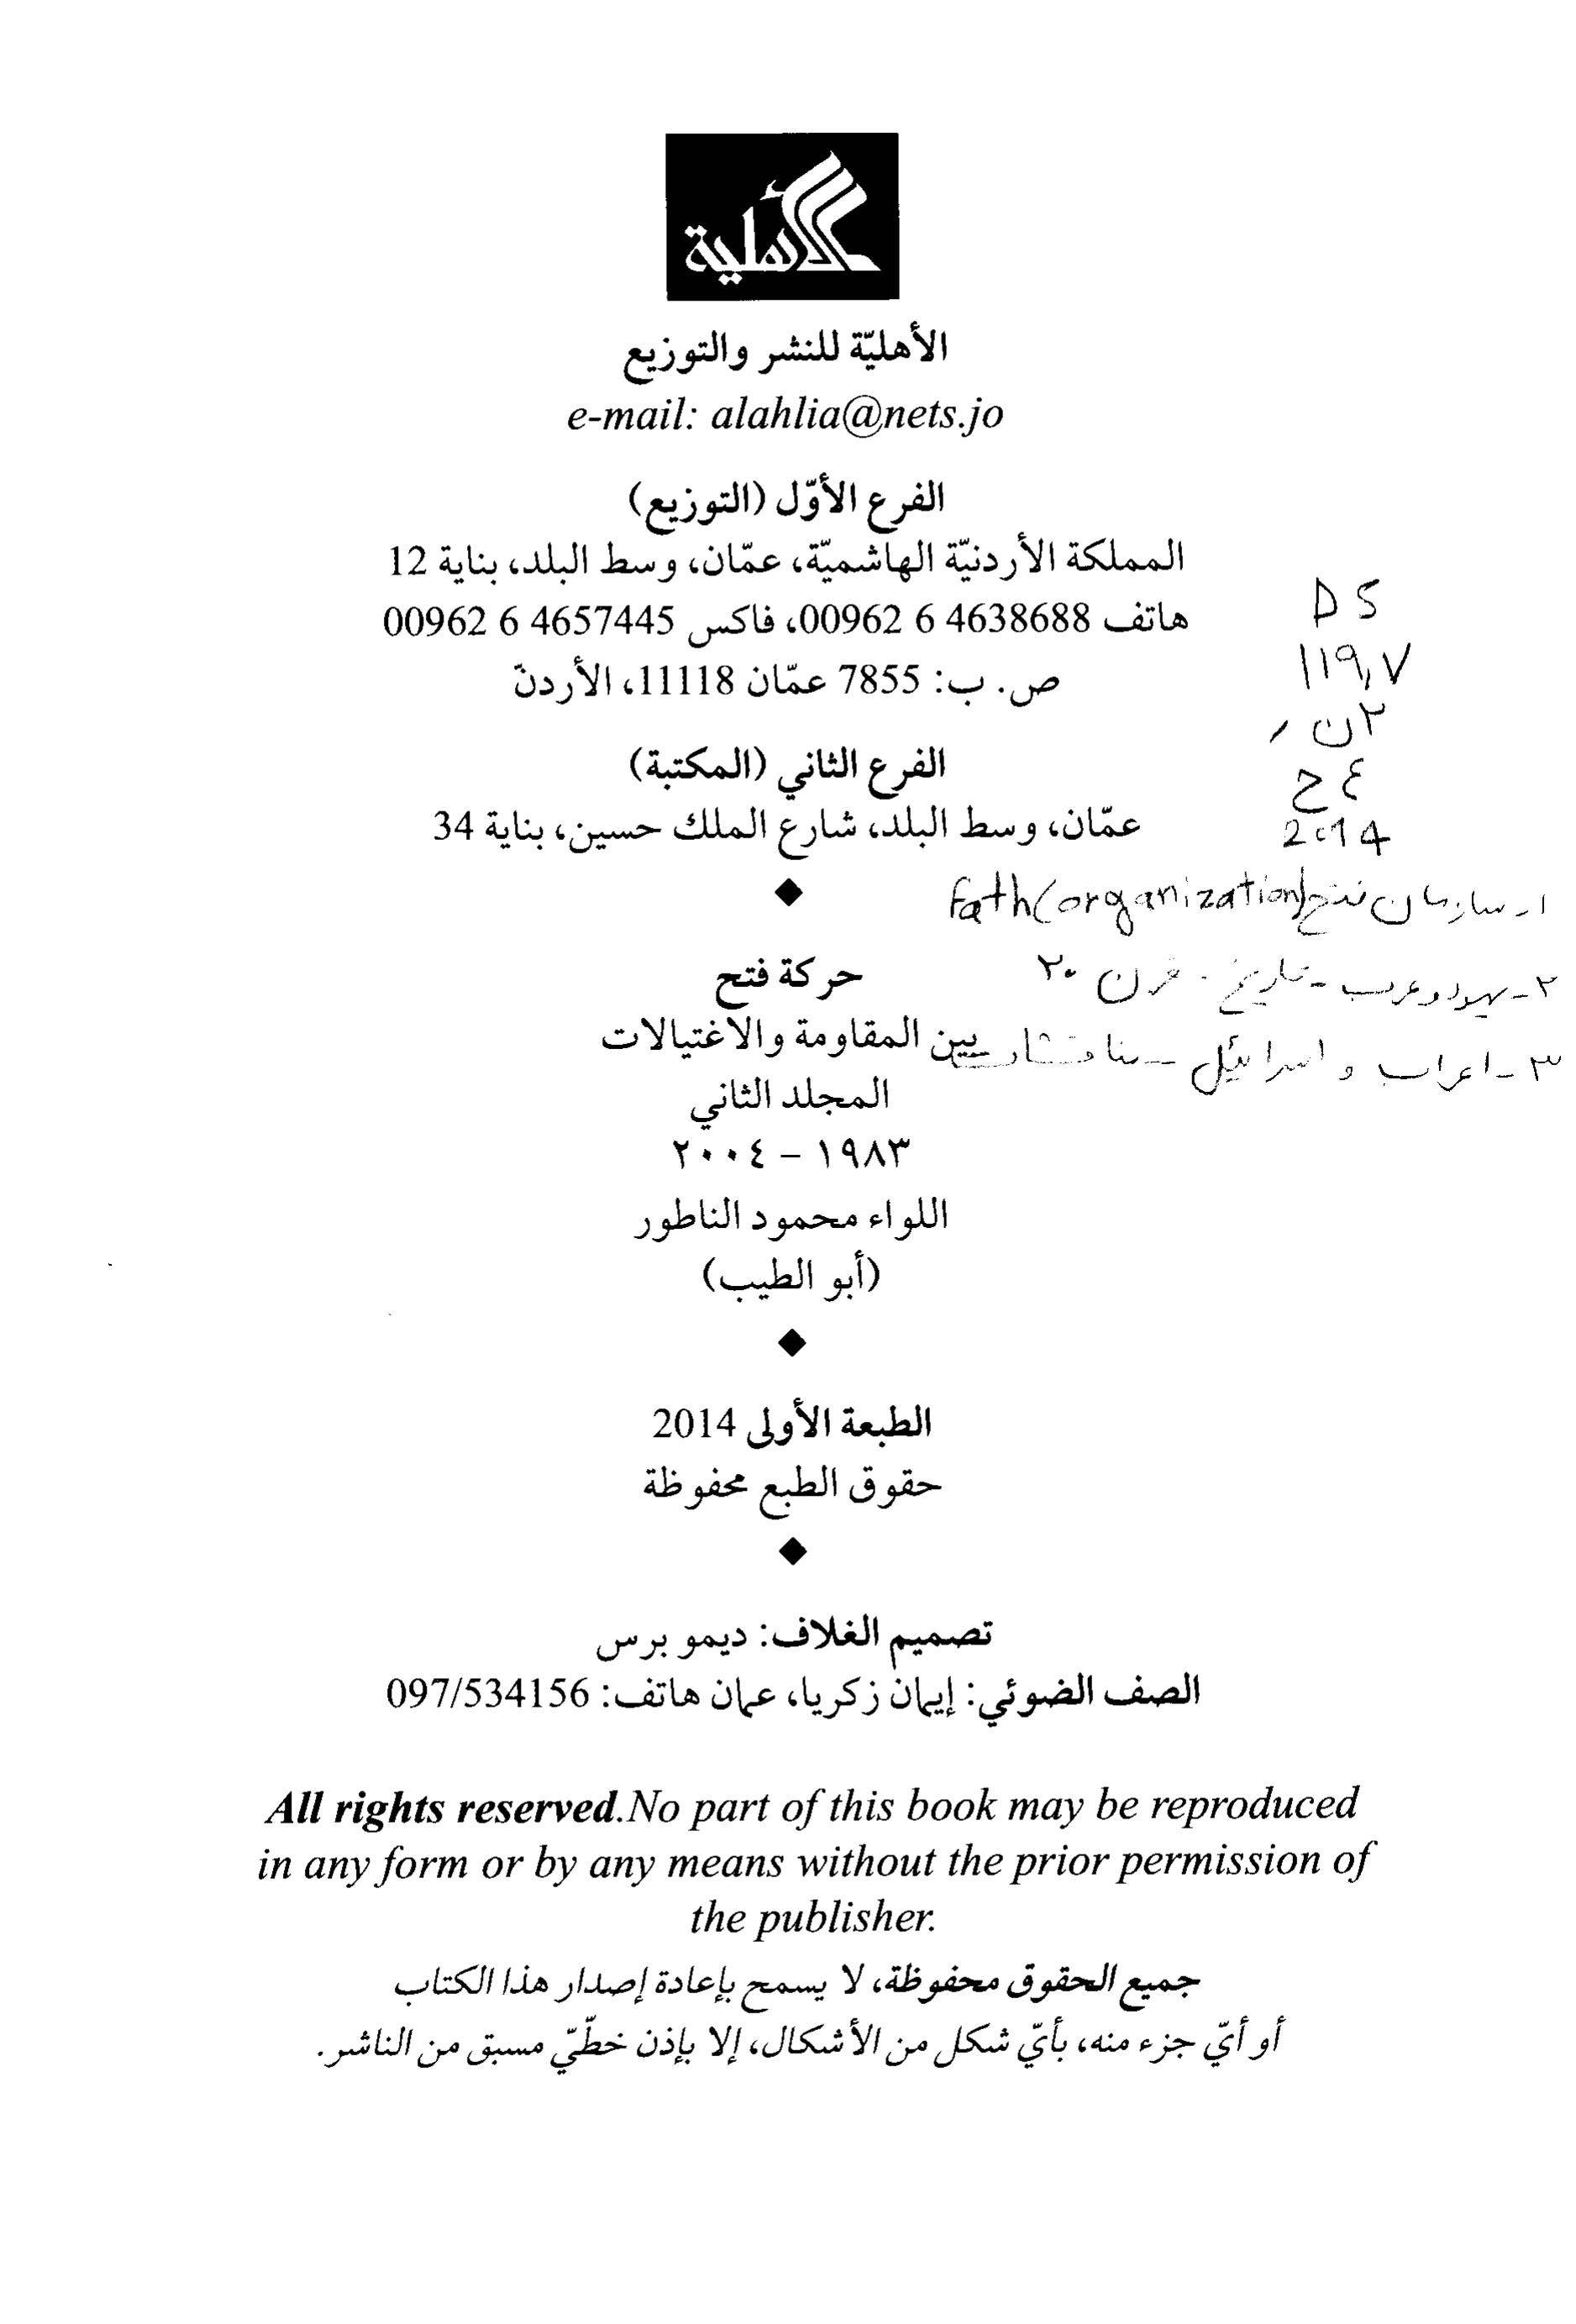 الأهلية
الأهليّة للنشر والتوزيع
e-mail: alahlia@nets.jo
الفرع الأوّل (التوزيع)
المملكة الأردنيّة الهاشميّة، عمّان، وسط البلد، بناية 12
هاتف 4638688 6 00962، فاكس 4657445 6 00962
ص. ب: 7855 عمّان 11118، الأردنّ
الفرع الثاني (المكتبة)
عمّان، وسط البلد، شارع الملك حسين، بناية 34
DS
١١٩,٧
٢ن
٤ح
2014
١- سازمان فتح Fath(organization)
٢- یهود و عرب - تاریخ - قرن ٢٠
٣- اعراب و اسرائیل - مناقشات
حركة فتح
بين المقاومة والاغتيالات
المجلد الثاني
١٩٨٣ – ٢٠٠٤
اللواء محمود الناطور
(أبو الطيب)
الطبعة الأولى 2014
حقوق الطبع محفوظة
تصميم الغلاف: ديمو برس
الصف الضوئي: إيمان زكريا، عمان هاتف: 097/534156
All rights reserved.No part of this book may be reproduced
in any form or by any means without the prior permission of
the publisher.
جميع الحقوق محفوظة، لا يسمح بإعادة إصدار هذا الكتاب
أو أيّ جزء منه، بأيّ شكل من الأشكال، إلا بإذن خطّيّ مسبق من الناشر.